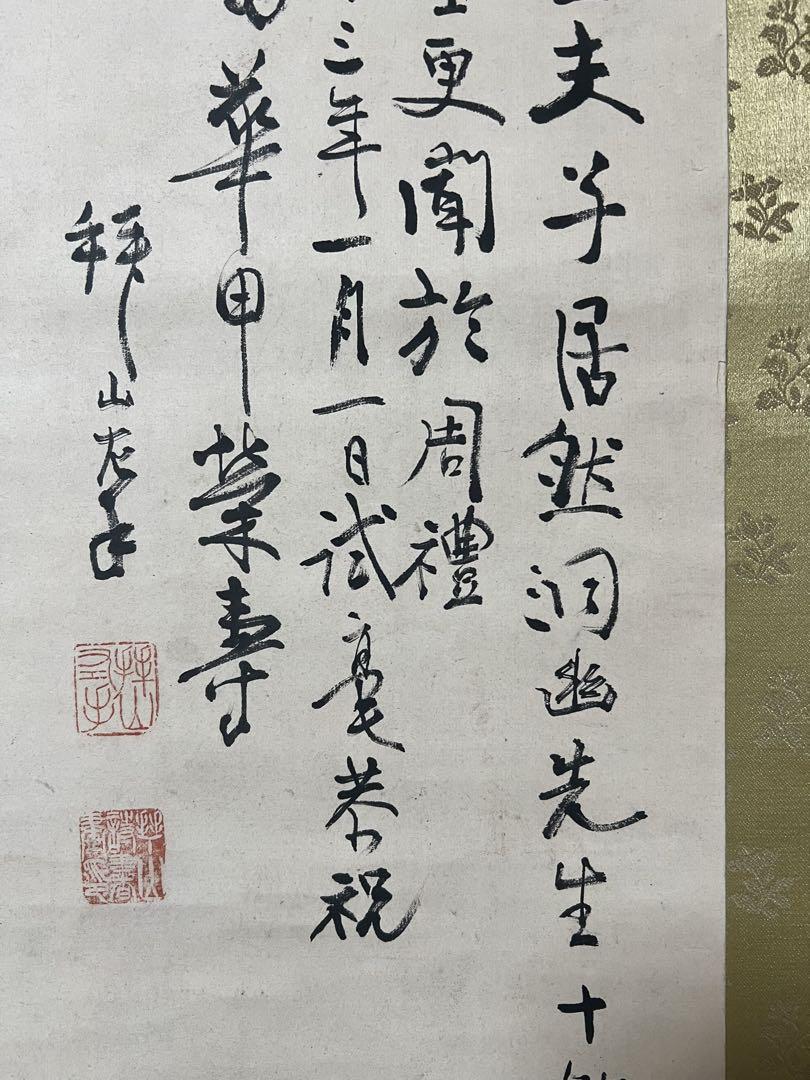 夫子居然洞幽先生十
更聞於周禮
三年一月一日試毫恭祝
華甲榮壽
拜山左手